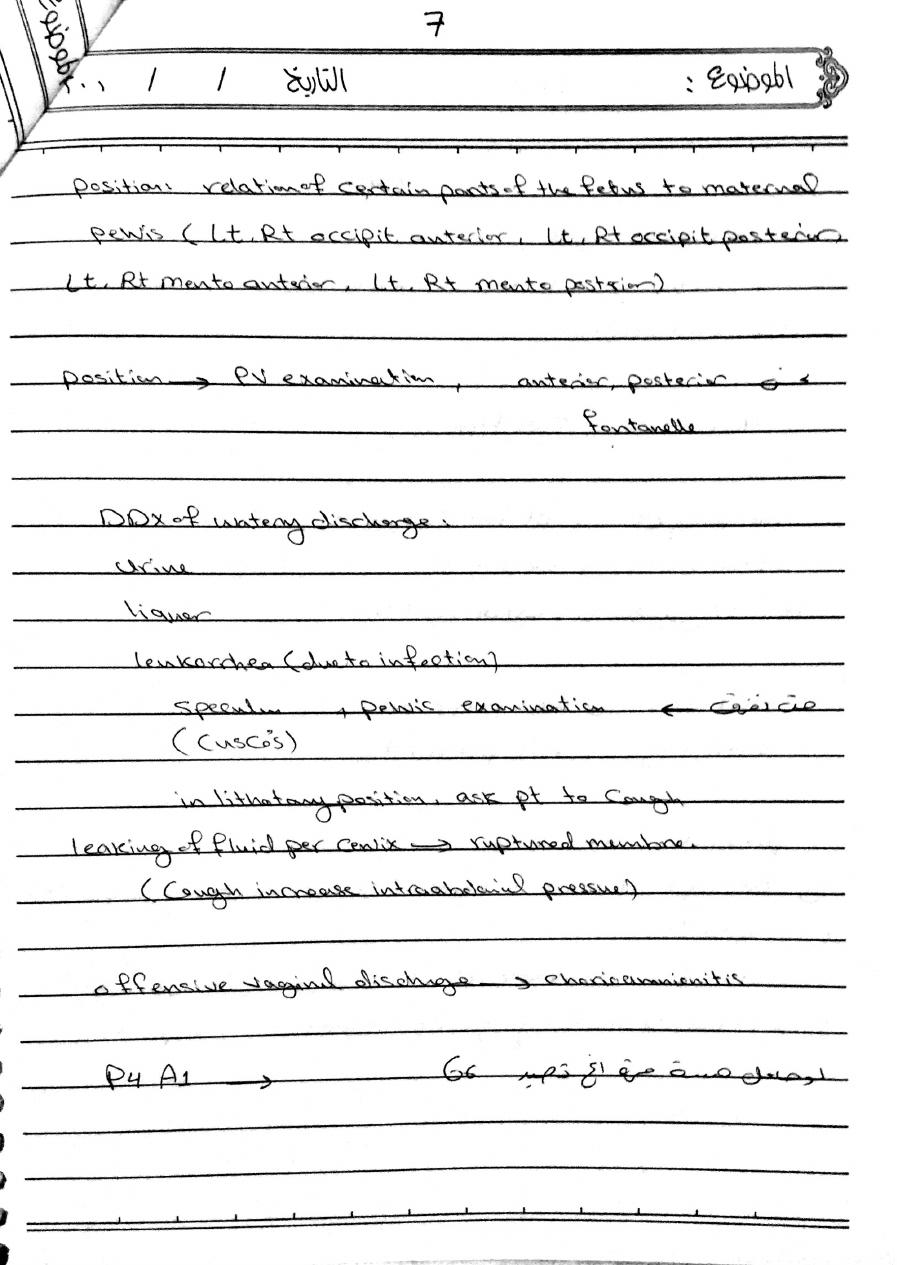 7
الموضوع : التاريخ / / ٢٠٠
الموضوع
position: relation of certain parts of the fetus to maternal
pelvis (Lt, Rt occipit anterior, Lt, Rt occipit posterior
Lt, Rt mento anterior, Lt, Rt mento posterior)
position → PV examination, anterior, posterior
fontanelle
DDx of watery discharge:
urine
liquer
leukorrhea (due to infection)
speculum, pelvic examination ←
(Cusco's)
in lithotomy position, ask pt to Cough
leaking of fluid per cervix → ruptured membrane.
(Cough increase intraabdominal pressure)
offensive vaginal discharge → chorioamnionitis
P4 A1 → G6